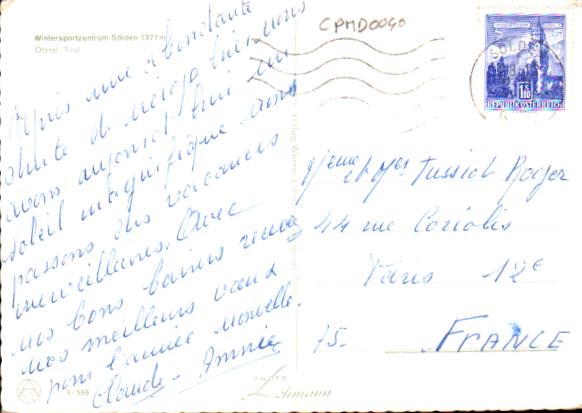 Wintersportzentrum Sölden 1377 m
Ötztal, Tirol
CPMD0040
SÖLDEN
1.80
REPUBLIK ÖSTERREICH
Après une abondante
chute de neige hier nous
avons aujourd'hui un
soleil magnifique nous
passons des vacances
merveilleuses. Avec
nos bons baisers recevez
nos meilleurs vœux
pour l'année nouvelle.
Claude - Annie
Mr et Mme Tussiot Roger
44 rue Coriolis
Paris 12e
75- FRANCE
PHOTO
Lohmann